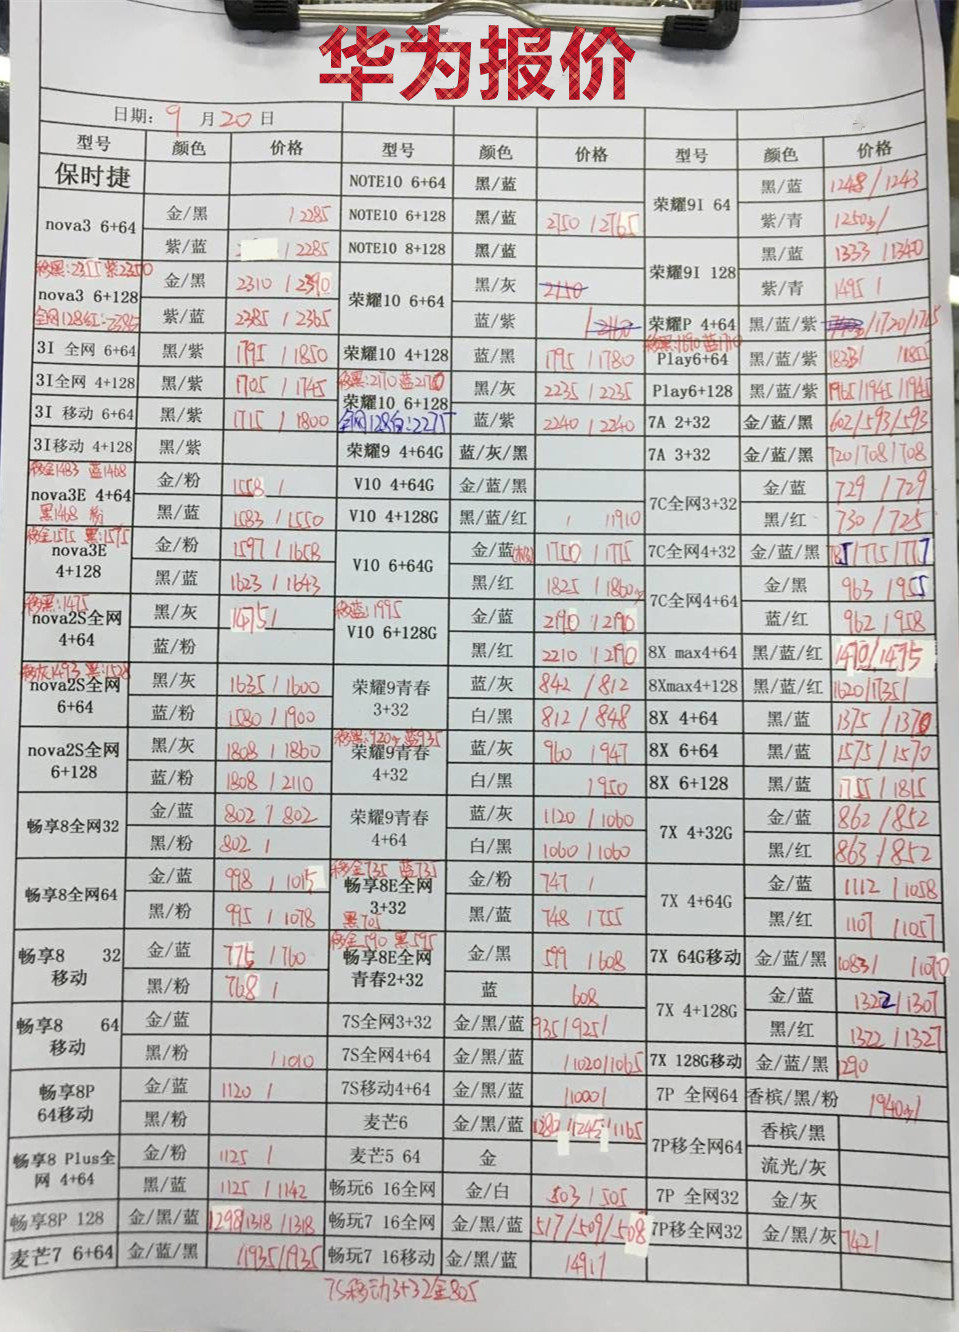 华为报价
日期: 9 月 20 日
型号 颜色 价格 型号 颜色 价格 型号 颜色 价格
保时捷
nova3 6+64 金/黑 /2285
紫/蓝 /2285
移黑:2355 紫2350
nova3 6+128 金/黑 2310 /2390
全网128红:2385 紫/蓝 2385 /2365
3I 全网 6+64 黑/紫 1795 /1850
3I全网 4+128 黑/紫 1705 /1745
3I 移动 6+64 黑/紫 1715 /1800
3I移动 4+128 黑/紫
移金1483 蓝1468
nova3E 4+64 金/粉 1558 /
黑1468 粉 黑/蓝 1583 /1550
移金1575 黑:1575
nova3E 4+128 金/粉 1597 /1658
黑/蓝 1623 /1643
移黑:1475
nova2S全网 4+64 黑/灰 1475 /
蓝/粉
移灰1493 黑:1528
nova2S全网 6+64 黑/灰 1635 /1600
蓝/粉 1580 /1900
nova2S全网 6+128 黑/灰 1808 /1860
蓝/粉 1808 /2110
畅享8全网32 金/蓝 802 /802
黑/粉 802 /
畅享8全网64 金/蓝 998 /1015
黑/粉 995 /1078
畅享8 32 移动 金/蓝 775 /760
黑/粉 768 /
畅享8 64 移动 金/蓝
黑/粉 /1010
畅享8P 64移动 金/蓝 1120 /
黑/粉
畅享8 Plus全网 4+64 金/粉 1125 /
黑/蓝 1125 /1142
畅享8P 128 金/黑/蓝 1298/1318 /1318
麦芒7 6+64 金/蓝/黑 /1935/1935
NOTE10 6+64 黑/蓝
NOTE10 6+128 黑/蓝 2750 /2765
NOTE10 8+128 黑/蓝
荣耀10 6+64 黑/灰 2150
蓝/紫
荣耀10 4+128 蓝/黑 1795 /1780
移黑:2170 蓝2170
荣耀10 6+128 黑/灰 2235 /2235
全网128白:2275 蓝/紫 2240 /2240
荣耀9 4+64G 蓝/灰/黑
V10 4+64G 金/蓝/黑
V10 4+128G 黑/蓝/红 / /1910
V10 6+64G 金/蓝 1750 /1775
黑/红 1825 /1860
移蓝:1995
V10 6+128G 金/蓝 2190 /2190
黑/红 2210 /2190
荣耀9青春 3+32 蓝/灰 842 /812
白/黑 812 /848
移黑:920 蓝935
荣耀9青春 4+32 蓝/灰 960 /947
白/黑 /950
荣耀9青春 4+64 蓝/灰 1120 /1060
白/黑 1060 /1060
移金735 蓝735
畅享8E全网 3+32 金/粉 747 /
黑705 黑/蓝 748 /755
移金590 黑595
畅享8E全网 青春2+32 金/黑 599 /608
蓝 608
7S全网3+32 金/黑/蓝 935/925/
7S全网4+64 金/黑/蓝 /1020/1065
7S移动4+64 金/黑/蓝 /1000/
麦芒6 金/黑/蓝 1282/1245/1165
麦芒5 64 金
畅玩6 16全网 金/白 503 /505
畅玩7 16全网 金/黑/蓝 517/509/508
畅玩7 16移动 金/黑/蓝 /491/
荣耀9I 64 黑/蓝 1248 /1243
紫/青 1250 /
荣耀9I 128 黑/蓝 1333 /1340
紫/青 1495 /
荣耀P 4+64 黑/蓝/紫 /1720/1715
移黑:1690 蓝1710
Play6+64 黑/蓝/紫 1823/ /1855
Play6+128 黑/蓝/紫 1965/1945/1945
7A 2+32 金/蓝/黑 602/593/593
7A 3+32 金/蓝/黑 720/708/708
7C全网3+32 金/蓝 729 /729
黑/红 730 /725
7C全网4+32 金/蓝/黑 785/775/777
7C全网4+64 金/黑 963 /955
蓝/红 962 /958
8X max4+64 黑/蓝/红 1470/1475
8Xmax4+128 黑/蓝/红 1620/1735/
8X 4+64 黑/蓝 1375 /1370
8X 6+64 黑/蓝 1575/1570
8X 6+128 黑/蓝 1755 /1815
7X 4+32G 金/蓝 862 /852
黑/红 863 /852
7X 4+64G 金/蓝 1112 /1058
黑/红 1107 /1057
7X 64G移动 金/蓝/黑 1083/ /1070
7X 4+128G 金/蓝 1322/1307
黑/红 1322 /1327
7X 128G移动 金/蓝/黑 1290
7P 全网64 香槟/黑/粉 1940 /
7P移全网64 香槟/黑
流光/灰
7P 全网32 金/灰
7P移全网32 金/黑/灰 1742/
7S移动3+32金805